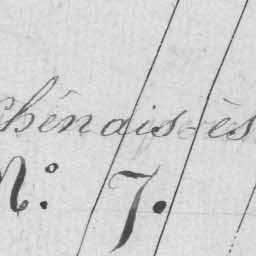 Chénais-ès
N.º 7.